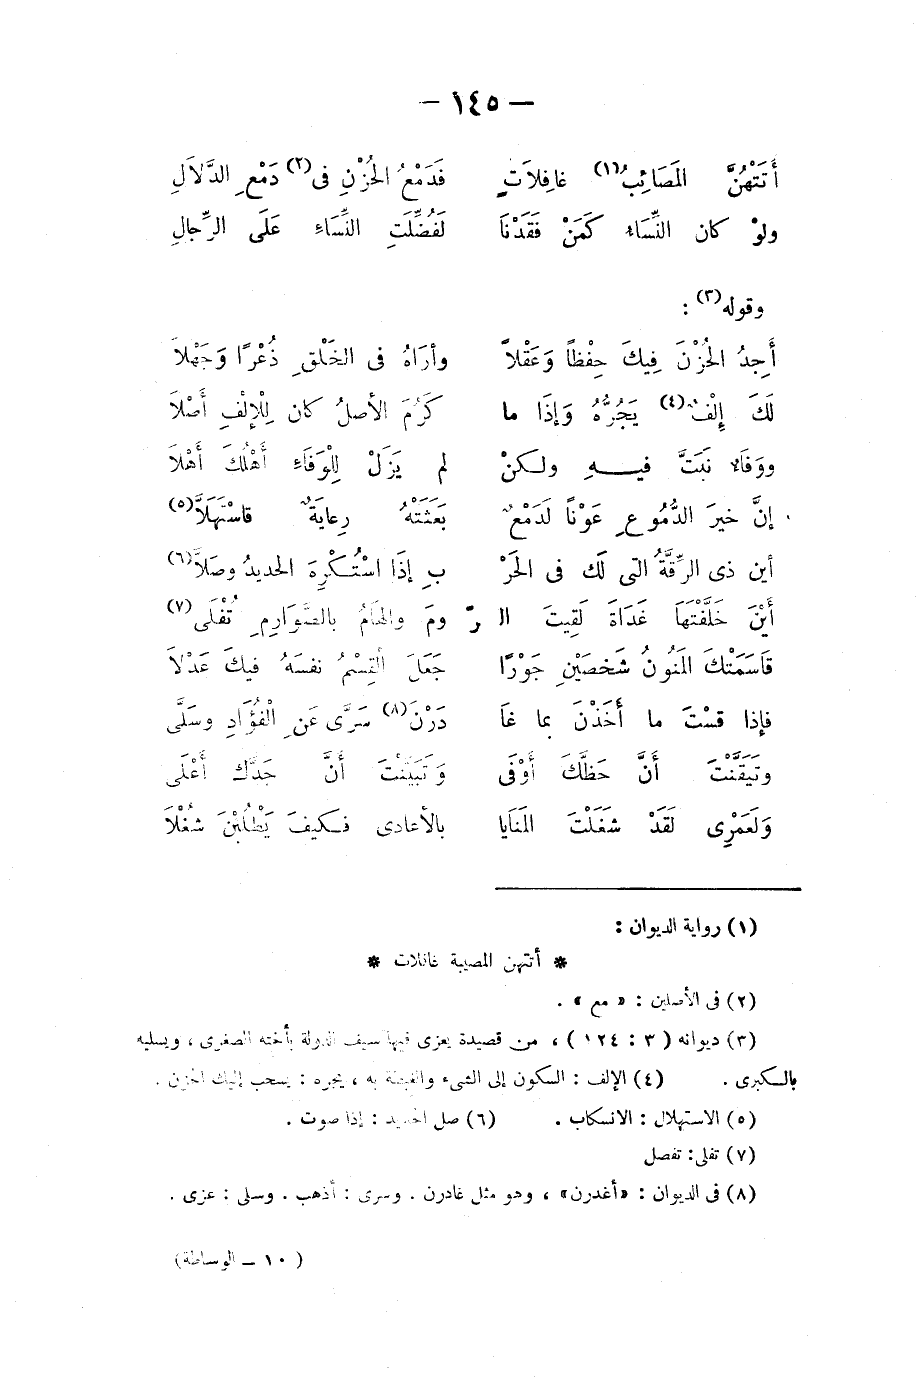 — ١٤٥ —
أَتَتْهُنَّ المَصَائِبُ(١) غافِلَاتٍ فَدَمْعُ الحُزْنِ فى(٢) دَمْعِ الدَّلاَلِ
ولوْ كان النِّسَاءُ كَمَنْ فَقَدْنَا لَفُضِّلَتِ النِّسَاءُ عَلَى الرِّجالِ
وقوله(٣) :
أَجِدُ الحُزْنَ فِيكَ حِفْظاً وَعَقْلاً وأرَاهُ فى الخَلْقِ ذُعْرًا وَجَهْلاَ
لَكَ إِلْفٌ(٤) يَجُرُّهُ وَإذَا ما كَرُمَ الأصلُ كان لِلْإلْفِ أَصْلاَ
ووَفَاءٌ نَبَتَّ فيـــهِ ولـكنْ لم يَزَلْ لِلْوَفَاءِ أَهْلُكَ أَهْلاَ
إنَّ خيرَ الدُّمُوعِ عَوْناً لَدَمْعٌ بَعَثَتْهُ رِعايَةٌ فاسْتَهَلاَّ(٥)
أين ذى الرِّقَّةُ التى لَك فى الحَرْ بِ إذَا اسْتُـكْرِهَ الحديدُ وصَلاَّ(٦)
أَيْنَ خَلَّفْتَهَا غَدَاةَ لَقِيتَ الـ رّومَ والهَامُ بالصَّوَارِمِ تُفْلَى(٧)
قاسَمَتْكَ المَنُونُ شَخصَيْنِ جَوْرًا جَعَلَ القِسْمُ نفسَهُ فيكَ عَدْلاَ
فإذا قسْتَ ما أَخَذْنَ بما غَا دَرْنَ(٨) سَرَّى عَنِ الْفُؤَادِ وسَلَّى
وتَيَقَّنْتَ أَنَّ حَظَّكَ أَوْفَى وَتَبَيَّنْتَ أَنَّ جَدَّكَ أَعْلَى
وَلَعَمْرِى لَقَدْ شَغَلْتَ المَنَايَا بالأعادى فـكيفَ يَطْلُبْنَ شُغْلاَ
(١) رواية الديوان :
* أتتهن المصيبة غافلات *
(٢) فى الأصلين : « مع » .
(٣) ديوانه ( ٣ : ١٢٤ ) ، من قصيدة يعزى فيها سيف الدولة بأخته الصغرى ، ويسليه
بالـكبرى . (٤) الإلف : السكون إلى الشىء والمحبة به ، يجره : يسحب إليك الحزن .
(٥) الاستهلال : الانسكاب . (٦) صل الحديد : إذا صوت .
(٧) تفلى: تفصل
(٨) فى الديوان : «أغدرن» ، وهو مثل غادرن . وسرى : أذهب . وسلى : عزى .
( ١٠ — الوساطة)